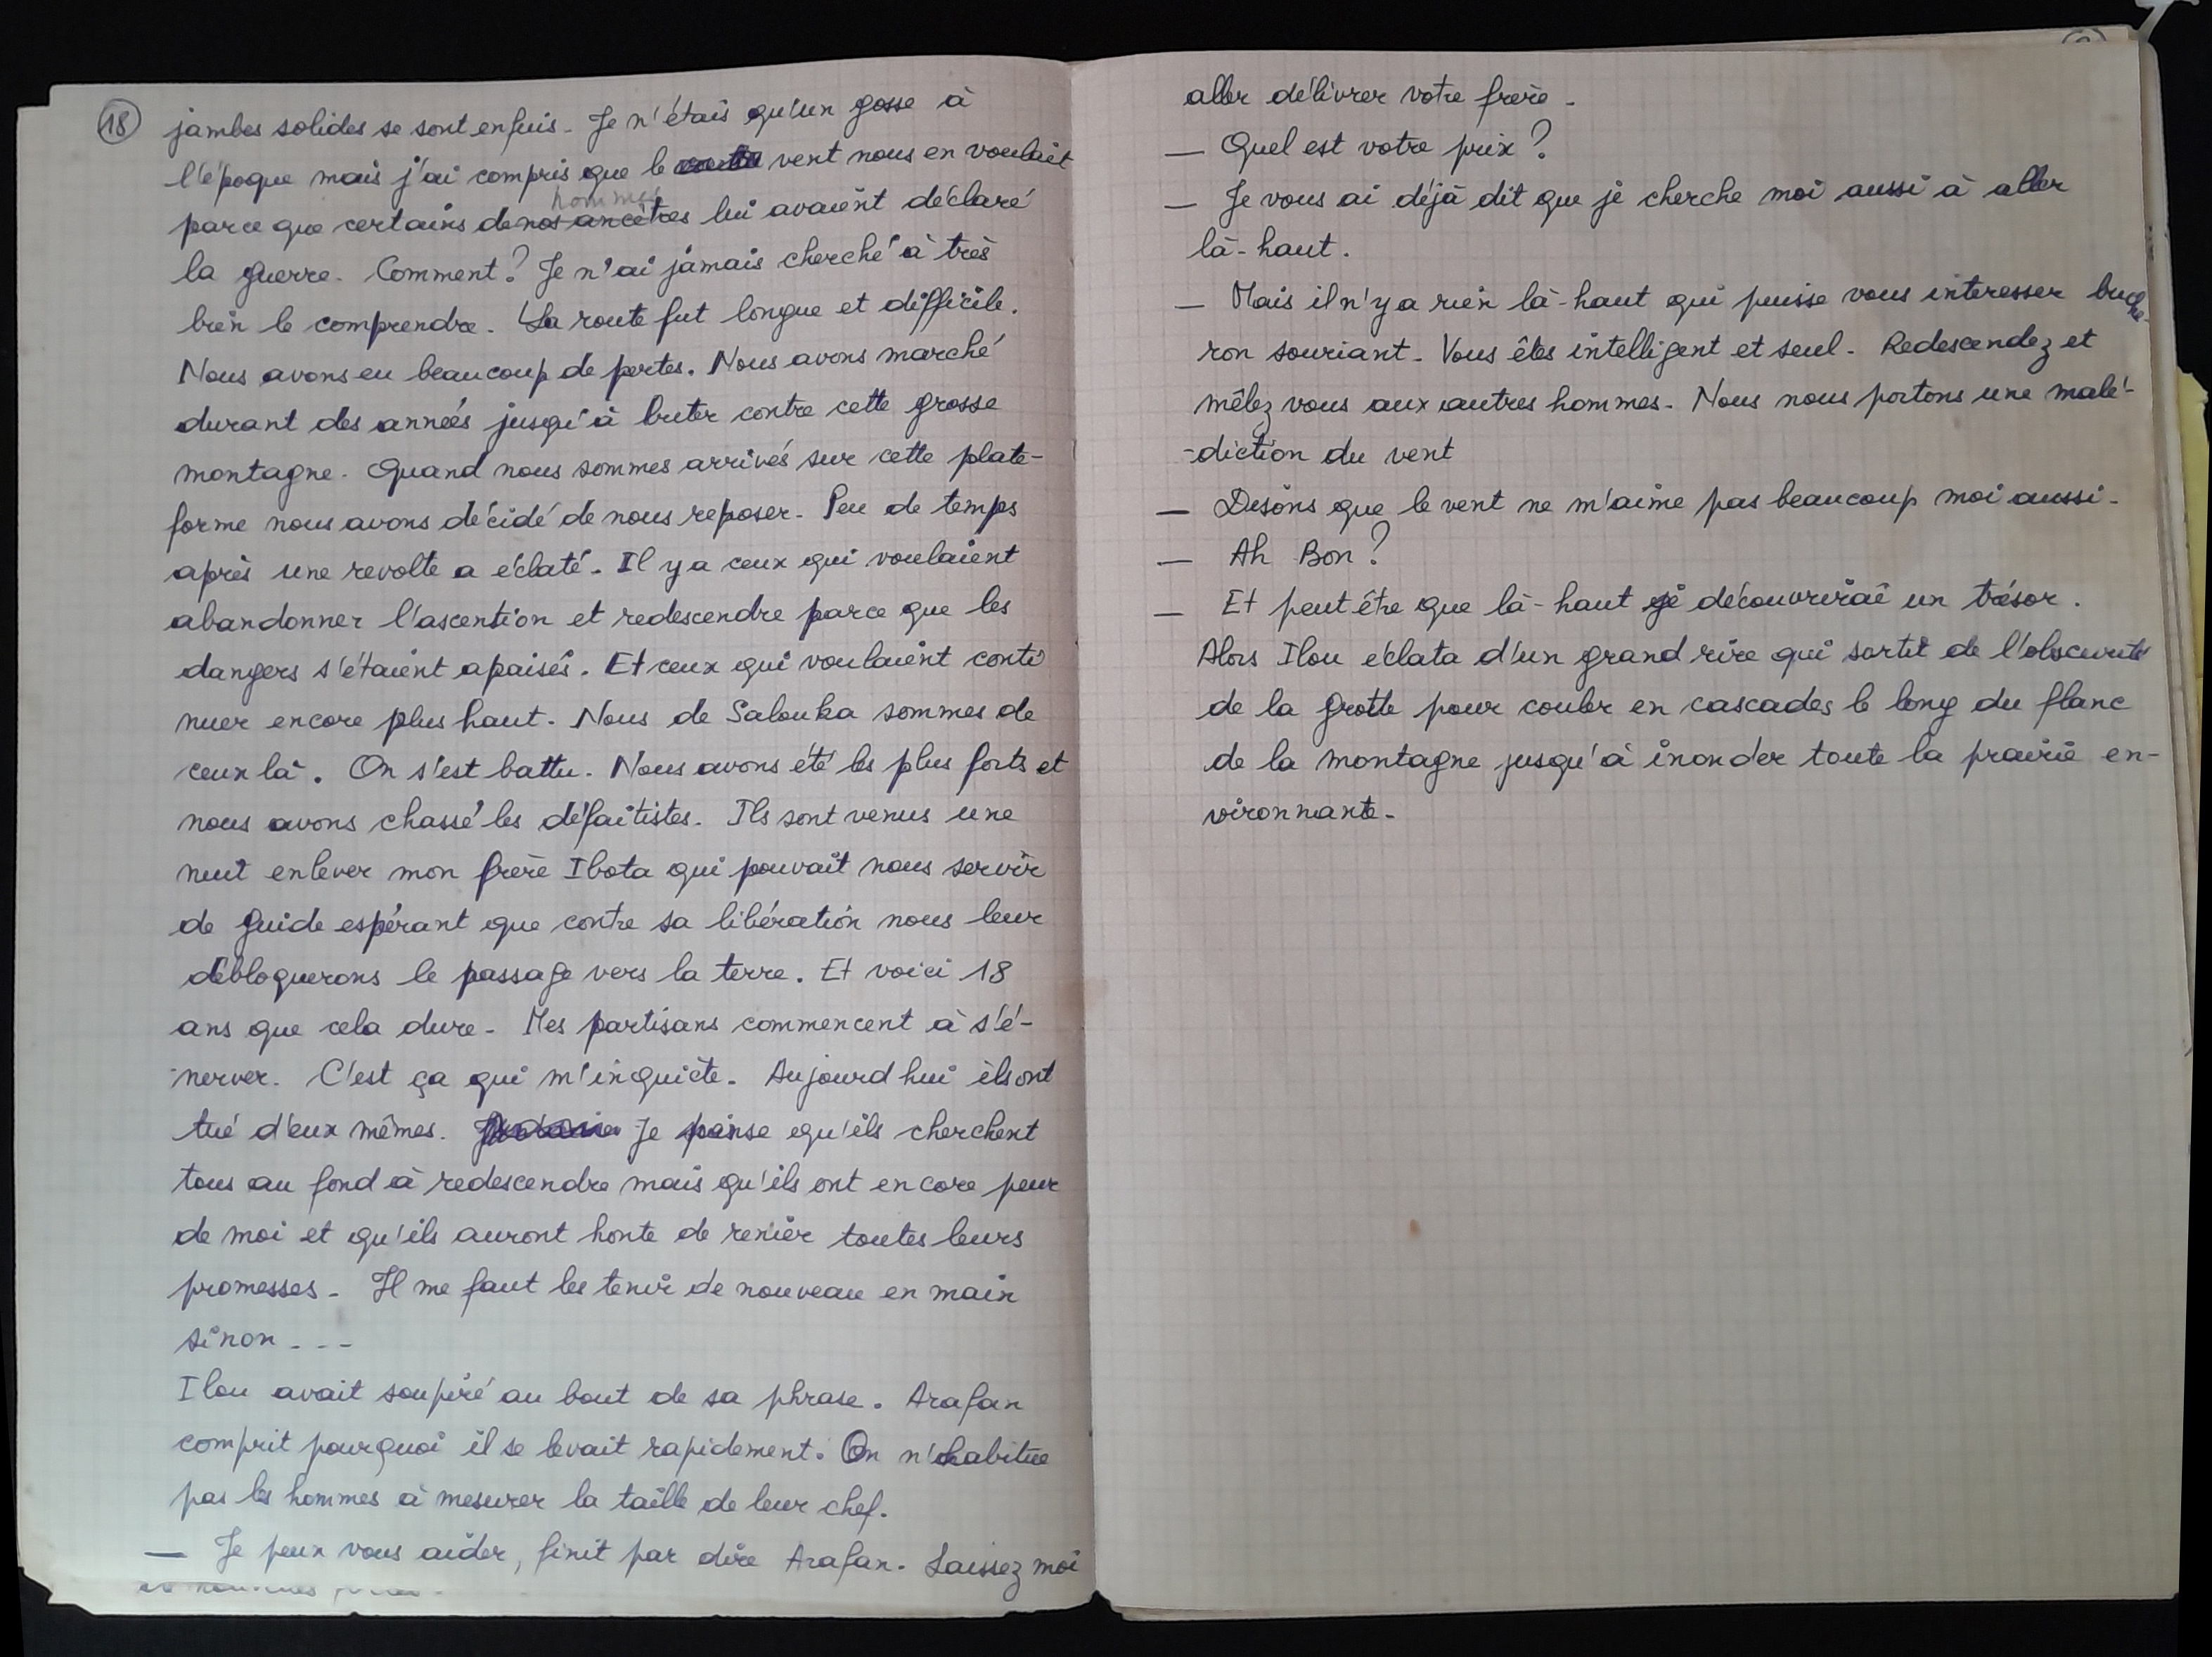 18
jambes solides se sont enfuis. Je n'étais qu'un gosse à
l'époque mais j'ai compris que le vent nous en voulait
hommes
parce que certains de nos ancêtres lui avaient déclaré
la guerre. Comment? Je n'ai jamais cherché à très
bien le comprendre. La route fut longue et difficile.
Nous avons eu beaucoup de pertes. Nous avons marché
durant des années jusqu'à buter contre cette grosse
montagne. Quand nous sommes arrivés sur cette plate-
forme nous avons décidé de nous reposer. Peu de temps
après une revolte a éclaté. Il y a ceux qui voulaient
abandonner l'ascention et redescendre parce que les
dangers s'étaient apaisés. Et ceux qui voulaient conti
nuer encore plus haut. Nous de Salouka sommes de
ceux là. On s'est battu. Nous avons été les plus forts et
nous avons chassé les défaitistes. Ils sont venus une
nuit enlever mon frère Ibota qui pouvait nous servir
de guide espérant que contre sa libération nous leur
débloquerons le passage vers la terre. Et voici 18
ans que cela dure. Mes partisans commencent à s'é-
nerver. C'est ça qui m'inquiète. Aujourd hui ils ont
tué d'eux mêmes. Je pense qu'ils cherchent
tous au fond à redescendre mais qu'ils ont encore peur
de moi et qu'ils auront honte de renier toutes leurs
promesses. Il me faut les tenir de nouveau en main
sinon...
Ilou avait soupiré au bout de sa phrase. Arafan
comprit pourquoi il se levait rapidement. On n'habitue
pas les hommes à mesurer la taille de leur chef.
— Je peux vous aider, finit par dire Arafan. Laissez moi
aller délivrer votre frère.
— Quel est votre prix?
— Je vous ai déjà dit que je cherche moi aussi à aller
là-haut.
— Mais il n'y a rien là-haut qui puisse vous interesser buche-
ron souriant. Vous êtes intelligent et seul. Redescendez et
mêlez vous aux autres hommes. Nous nous portons une malé-
-diction du vent
— Disons que le vent ne m'aime pas beaucoup moi aussi.
— Ah Bon?
— Et peut être que là-haut je découvrirai un trésor.
Alors Ilou éclata d'un grand rire qui sortit de l'obscurité
de la grotte pour couler en cascades le long du flanc
de la montagne jusqu'à inonder toute la prairie en-
vironnante.